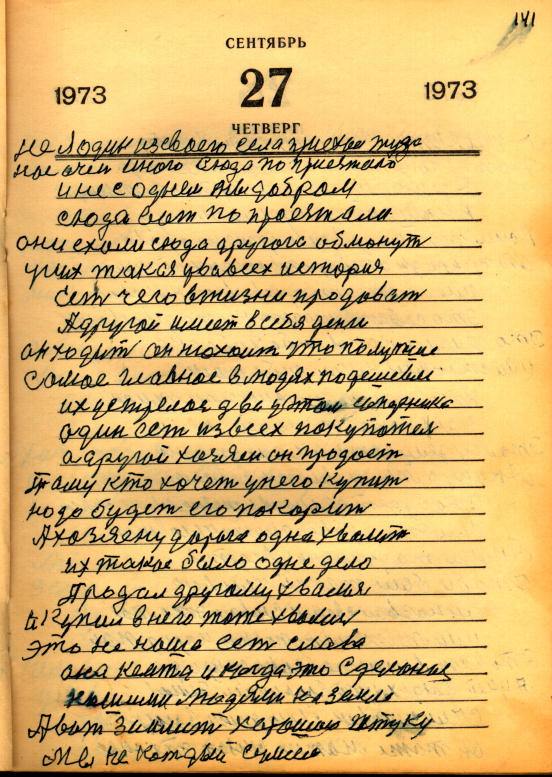 141
СЕНТЯБРЬ
1973 27 1973
ЧЕТВЕРГ
не я один из своего села приехал туда
нас очен много сюда поприехало
и не с одием мы добрам
сюда вот поприехали
они ехали сюда другога обмонут
у них такая у вавсех история
сет чего вжизни продоват
А другой имеет в себя денги
он ходит он нюхоит это
самое главное в людях подешевле
их
один сет извсех покупотел
а другой хозяен он продоет
таму кто хочет унего купит
надо будет его покорит
А хозяену дорога одна хвалит
их такое было одне дело
Продал другому хваля
и купил в него тоже хваля
это не наша сет слава
она кемта и когда это сделоно
нашими людями на земле
А вот хорошою штуку
Мы не